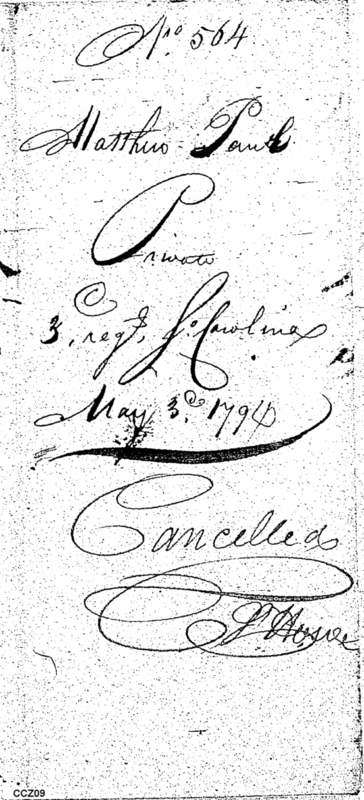 No 564
Matthew Paul
Private
3, regt, So Carolina
May 3d. 1794
Cancelled
CCZ09